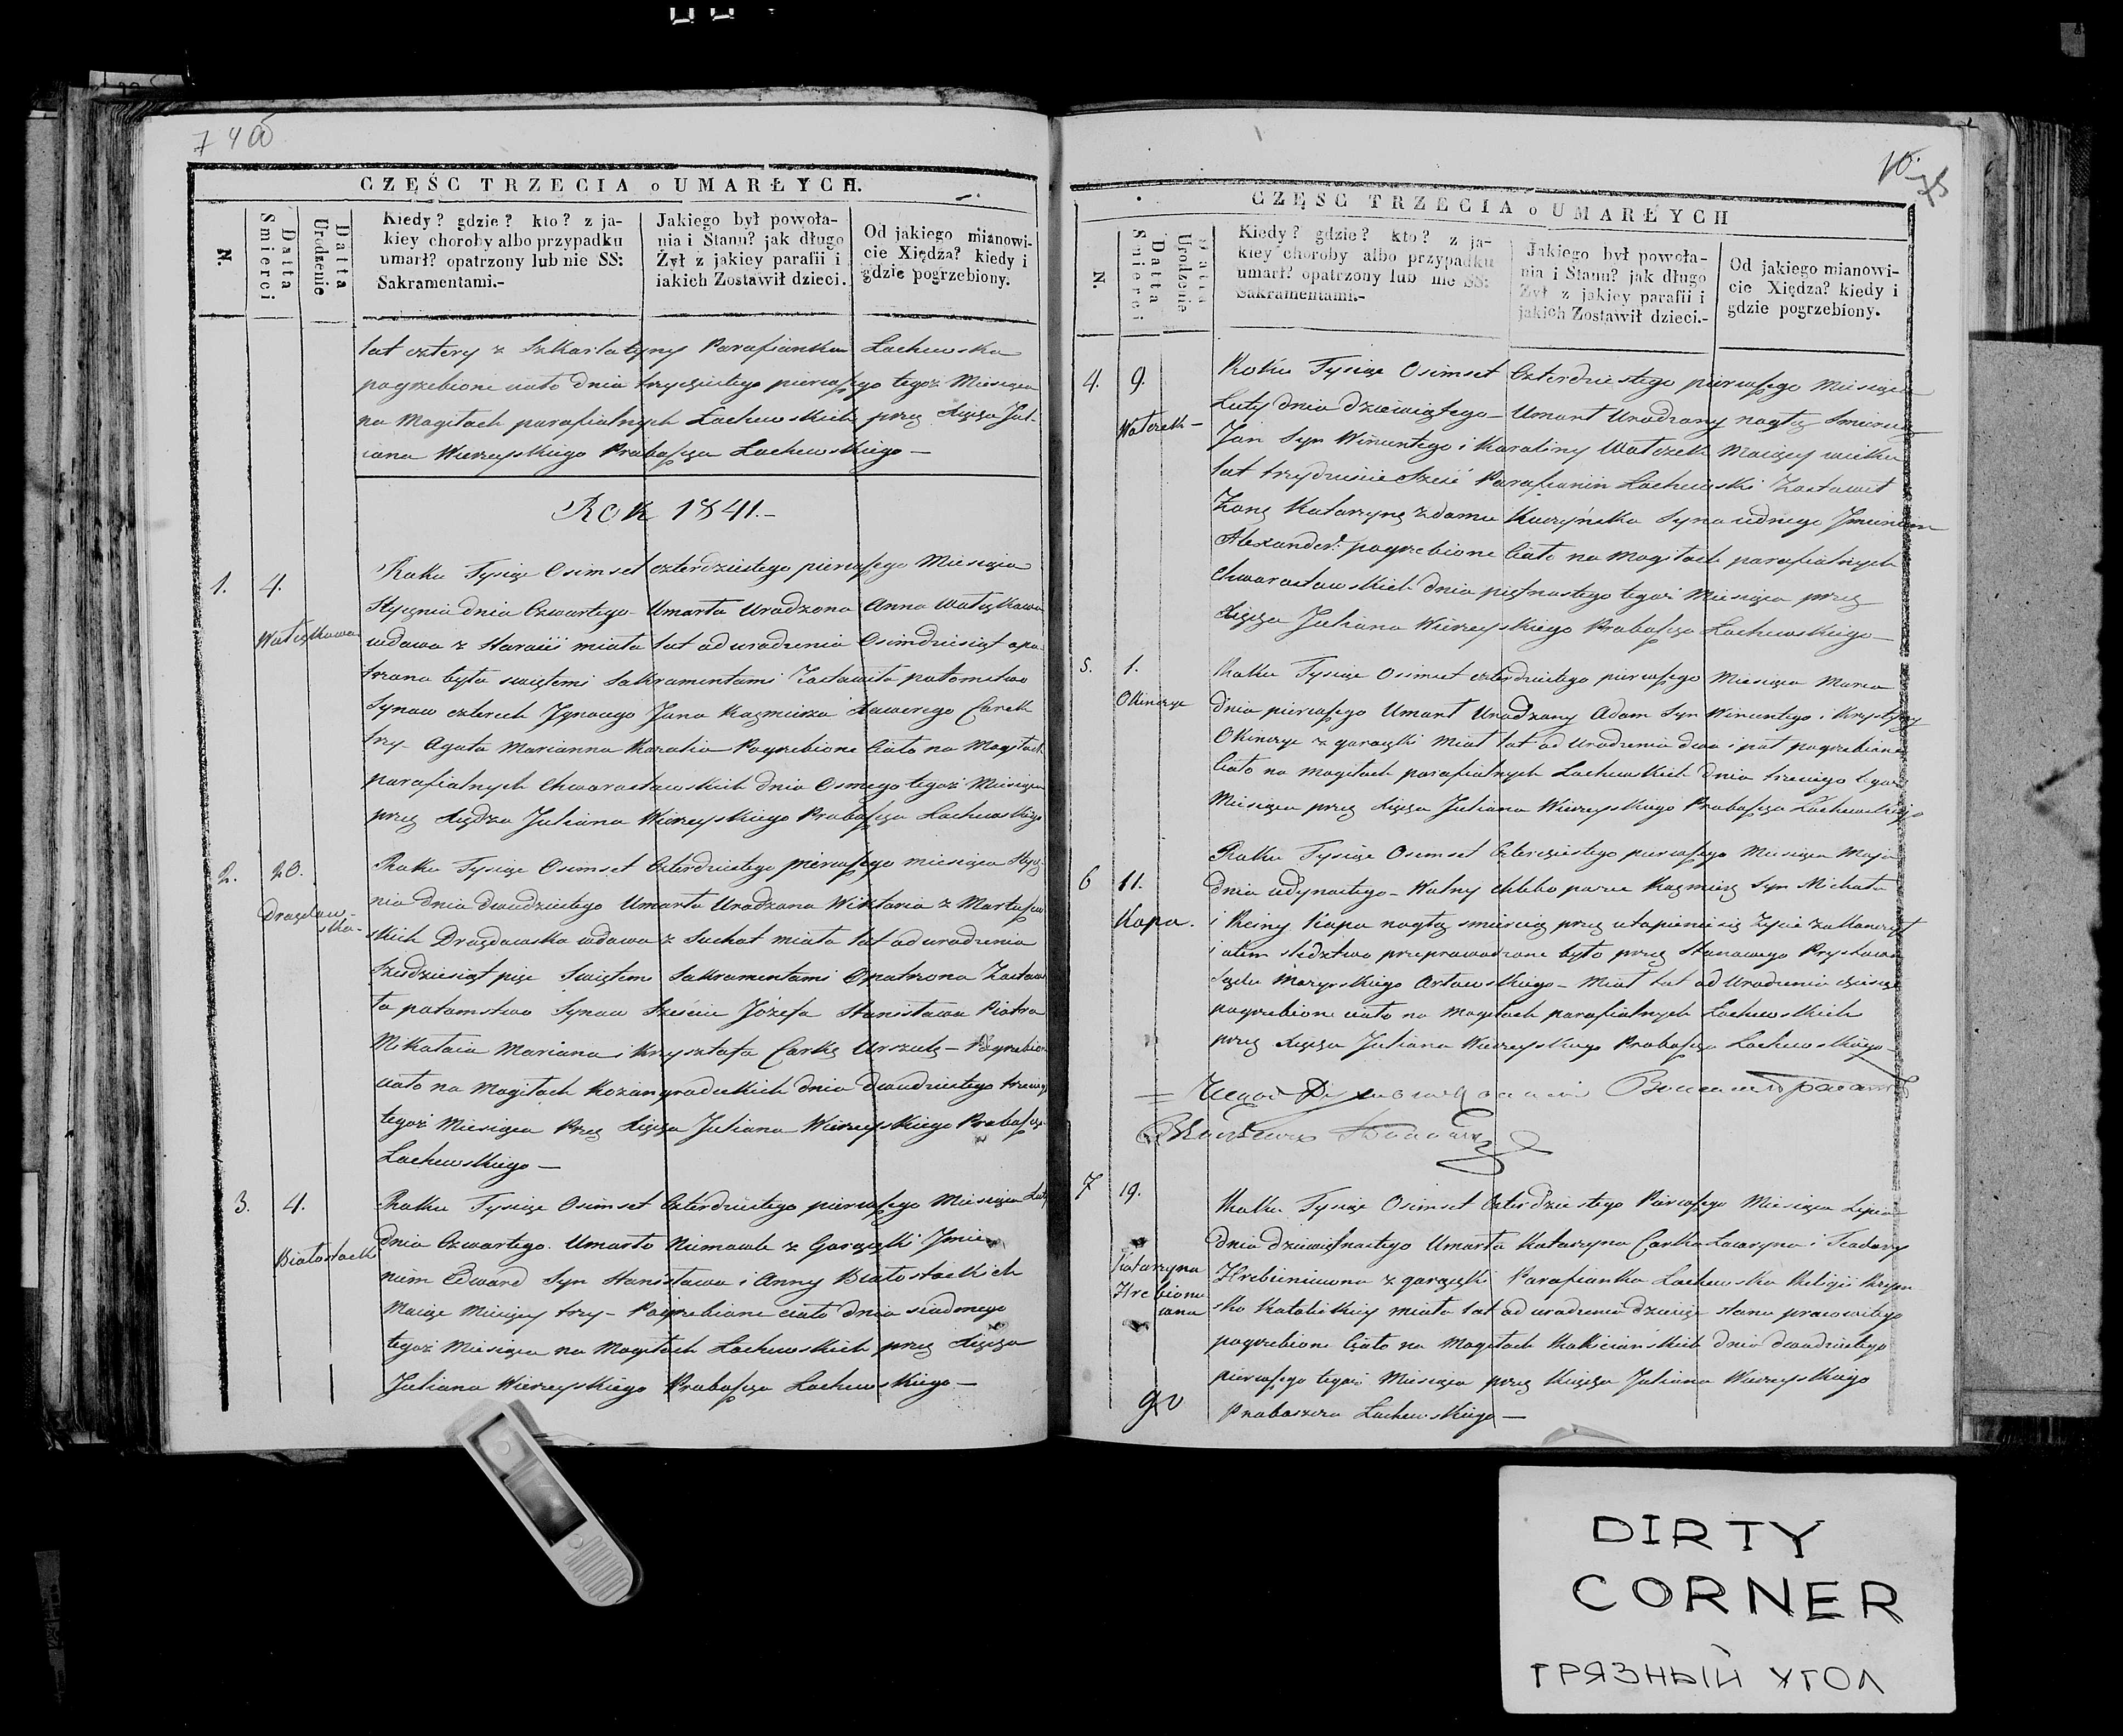 740
CZĘŚC TRZECIA o UMARŁYCH.
N.
Datta Smierci
Datta Urodzenie
Kiedy? gdzie? kto? z ja-
kiey choroby albo przypadku
umarł? opatrzony lub nie SS:
Sakramentami.-
Jakiego był powoła-
nia i Stanu? jak długo
Żył z jakiey parafii i
iakich Zostawił dzieci.
Od jakiego mianowi-
cie Xiędza? kiedy i
gdzie pogrzebiony.
lat cztery z Szkarlatyny Parafianka Lachewska
pogrzebione ciało dnia trzydziestego pierwszego tegoż Miesiąca
na Mogiłach parafialnych Lachewskich przez Xięża Jul-
iana Wierzyskiego Probaszcza Lachewskiego —
ROK 1841.-
1. 4.
Roku Tysiąc Osimset czterdziestego pierwszego Miesiąca
Stycznia dnia Czwartego Umarła Urodzona Anna
wdowa z Starości miała lat od urodzenia Osimdziesiąt opa-
trzona była swiętemi Sakramentami Zostawiła potomstwo
Synow czterech Jgnacego Jana Kazmierza Xawerego Corek
trzy Agata Marianna Karalia Pogrzebione Ciało na Mogiłach
parafialnych Chworostowskich dnia Osmego tegoż Miesiąca
przez Xiędza Juliana Wierzyskiego Probaszcza Lachewskiego
2. 20.
Roku Tysiąc Osimset Czterdziestego pierwszego miesiąca Stycz-
nia dnia dwudziestego Umarła Urodzona Wiktoria z
skich wdowa z Suchot miała lat od urodzenia
Szesdziesiąt pięc Swiętemi Sakramentami Opatrzona Zostawi-
ła potomstwo Synow Sześciu Józefa Stanisława Piotra
Mikołaia Mariana i Krysztofa Corkę Urszulę — Pogrzebione
ciało na Mogiłach Kozangrodeckich dnia dwudziestego trzeciego
tegoż Miesiąca Przez Xięża Juliana Wierzyskiego Probaszcza
Lachewskiego —
3. 4.
Roku Tysiąc Osimset Czterdziestego pierwszego Miesiąca Luty
Białostock
dnia Czwartego. Umarło Niemowle z Gorączki Jmie-
niem Edward Syn Stanisława i Anny Białostockich
Miesięcy trzy — Pogrzebione ciało dnia siodmego
tegoż Miesiąca na Mogiłach Lachewskich przez Xięża
Juliana Wierzyskiego Probaszcza Lachewskiego —
CZĘŚC TRZECIA o UMARŁYCH
N.
Datta Smierci
Datta Urodzenie
Kiedy? gdzie? kto? z ja-
kiey choroby albo przypadku
umarł? opatrzony lub nie SS:
Sakramentami.-
Jakiego był powoła-
nia i Stanu? jak długo
Żył z jakiey parafii i
jakich Zostawił dzieci.-
Od jakiego mianowi-
cie Xiędza? kiedy i
gdzie pogrzebiony.
4. 9.
Roku Tysiąc Osimset Czterdziestego pierwszego Miesiąca
Luty dnia dziewiątego — Umarł Urodzony nagłą Smiercią
Wołczek —
Jan Syn Wincentego i Karaliny Wołczek Maiący wieku
lat trzydzieście Sześć Parafianin Lachewski Zostawił
Żonę Katarzynę z domu Kuczyńska Syna iednego Jmieniem
Alexander: pogrzebione Ciało na Mogiłach parafialnych
Chworostowskich dnia piętnastego tegoż Miesiąca przez
Xięża Juliana Wierzyskiego Probaszcza Lachewskiego —
5. 1.
Roku Tysiąc Osimset czterdziestego pierwszego Miesiąca Marca
Okinczyc
dnia pierwszego Umarł Urodzony Adam Syn Wincentego i Krystyny
Okinczyc z gorączki Miał lat od Urodzenia dwa i poł pogrzebione
Ciało na Mogiłach parafialnych Lachewskich dnia trzeciego tegoż
Miesiąca przez Xięża Juliana Wierzyskiego Probaszcza Lachewskiego
Roku Tysiąc Osimset Czterdziestego pierwszego Miesiąca Maja
6 11.
dnia iedynastego — Wolny Kazmierz Syn Michała
Kopa.
i Kopa nagłą smiercią przez utopienie się Życie zakonczył
i sledztwo przeprowadzone było przez Stanowego Prystawa
Sądu Mozyrskiego — Miał lat od Urodzenia dziesięc
pogrzebione ciało na Mogiłach parafialnych Lachewskich
przez Xięża Juliana Wierzyskiego Probaszcza Lachewskiego —
7 19.
Roku Tysiąc Osimset Czterdziestego Pierwszego Miesiąca Lipca
dnia dziewiętnastego Umarła Katarzyna Corka i Teodory
Katarzyna
z gorączki Parafianka Lachewska Religii Rzym-
sko Katolickiey miała lat od urodzenia dziesięc stanu pracowitego
pogrzebione Ciało na Mogiłach dnia dwudziestego
pierwszego tegoż Miesiąca przez Xięża Juliana Wierzyskiego
Probaszcza Lachewskiego —
DIRTY
CORNER
ГРЯЗНЫЙ УГОЛ